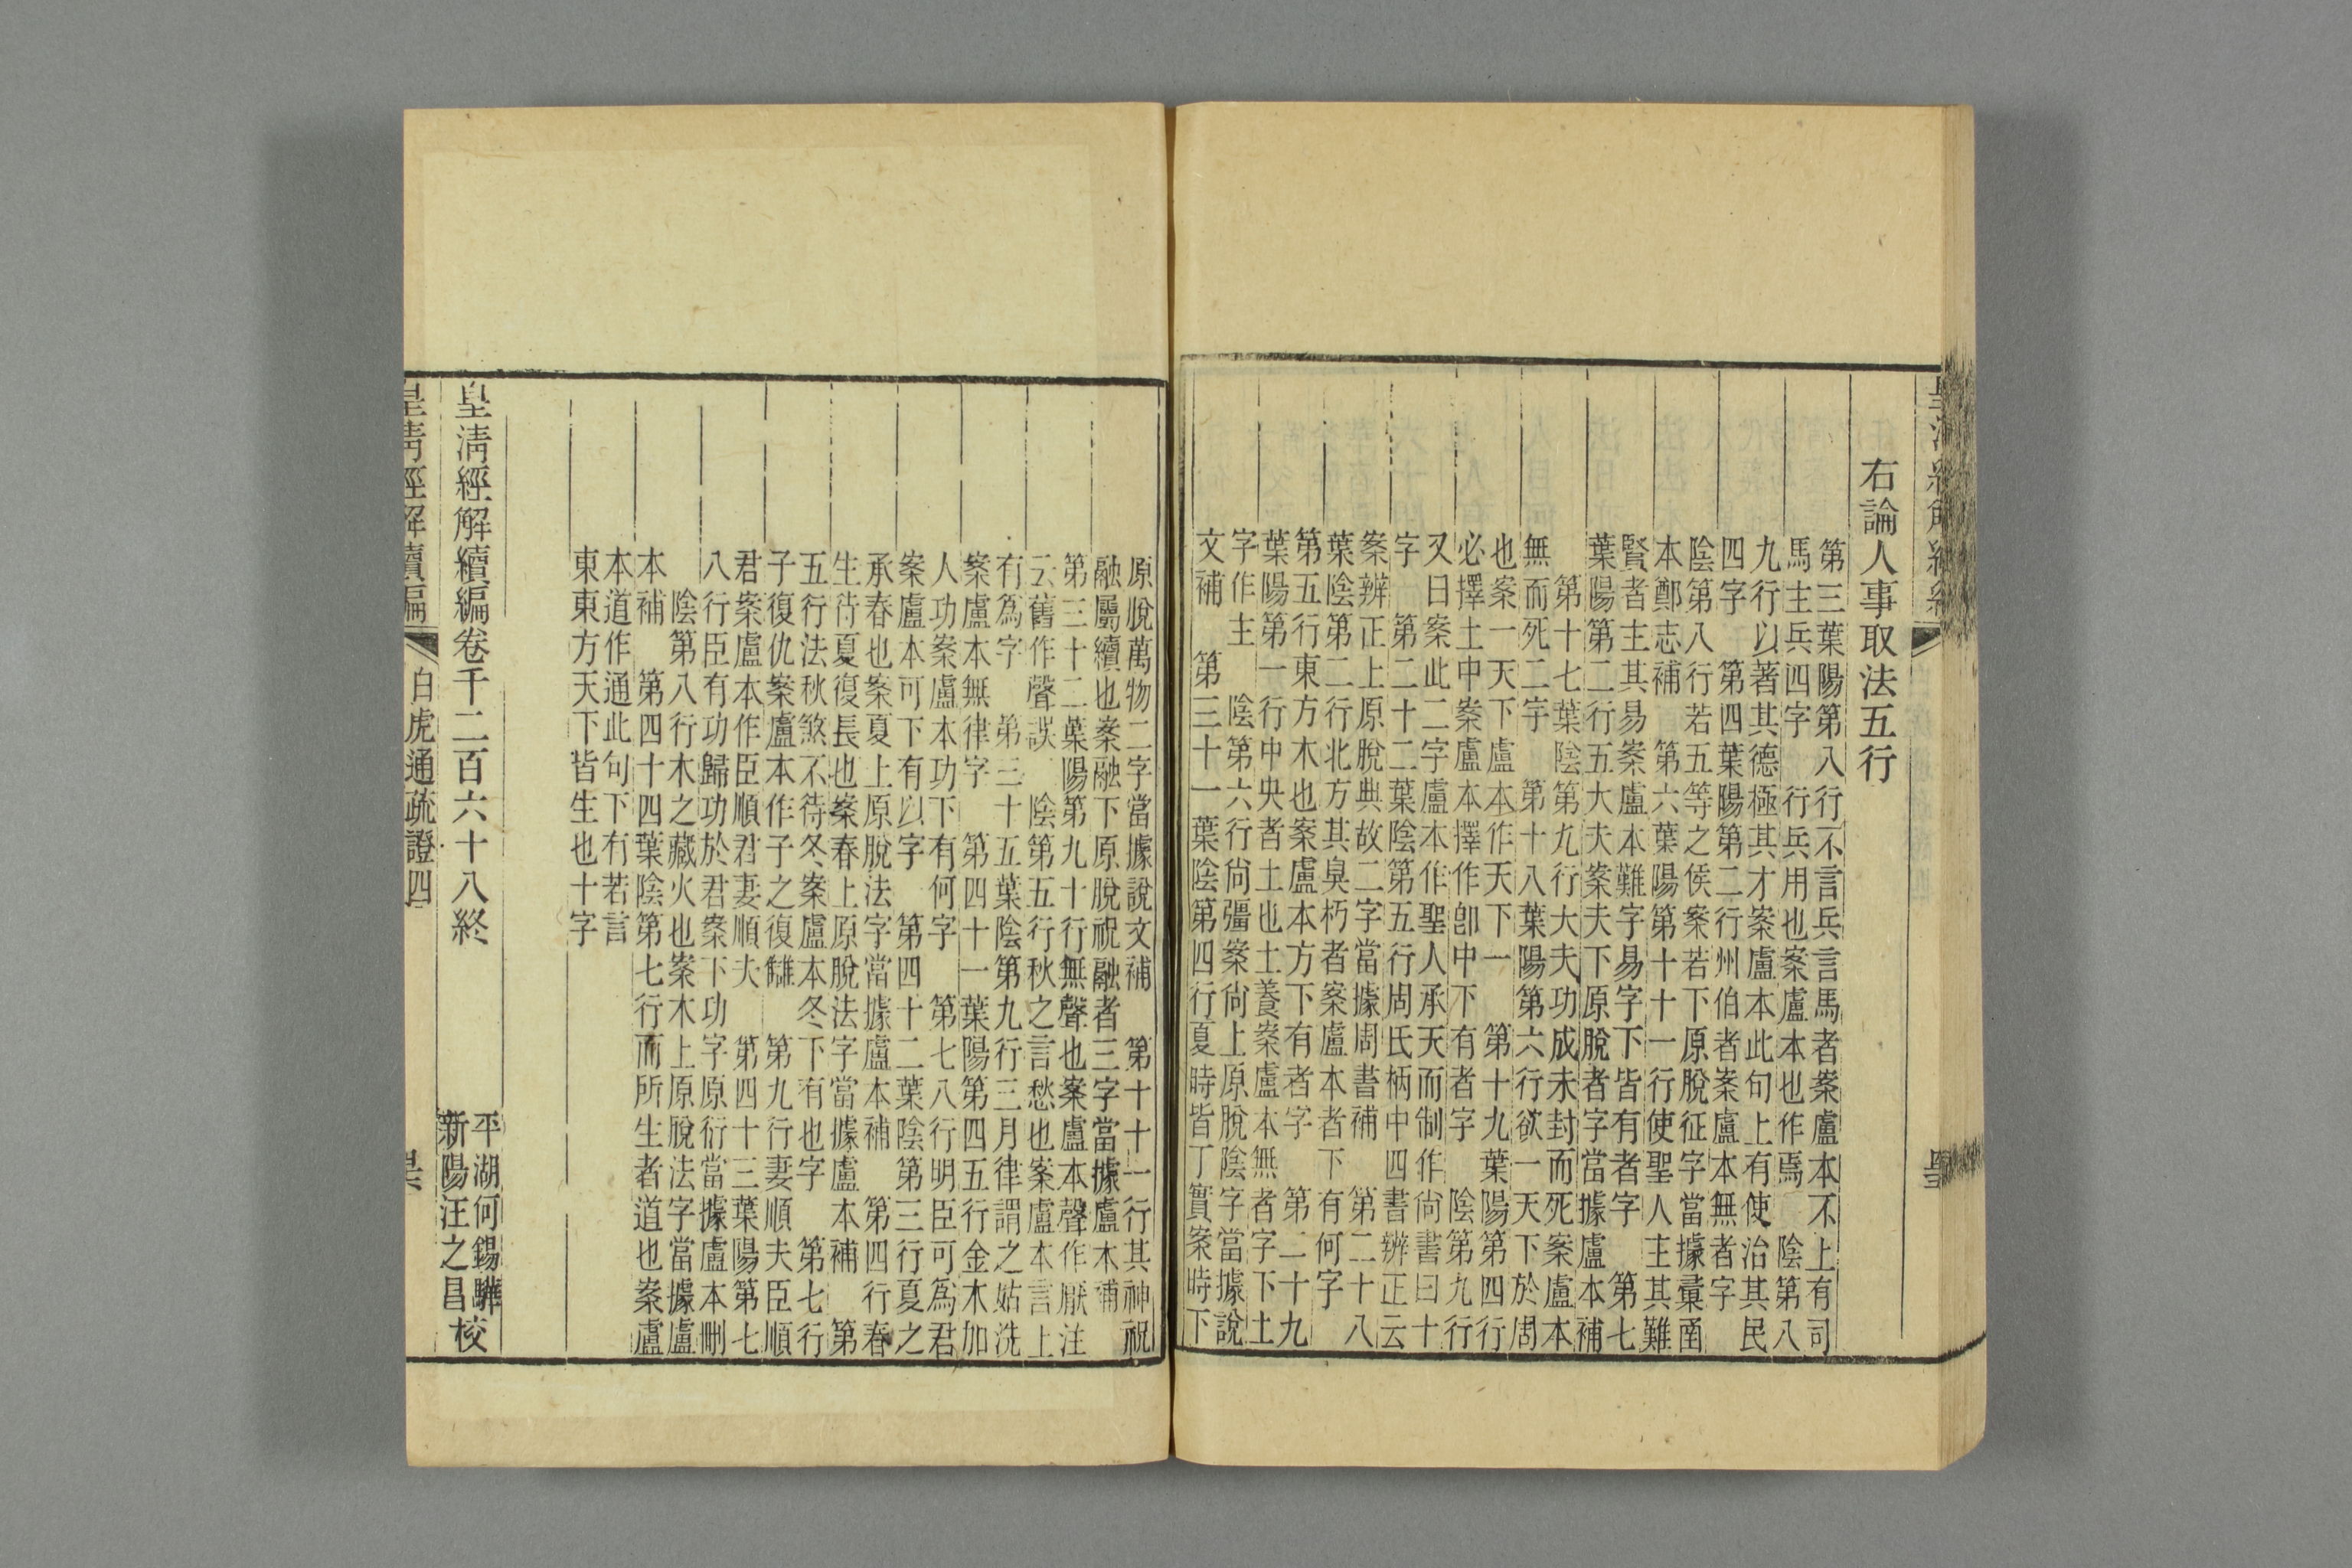 右論人事取法五行
第三葉陽第八行不言兵言馬者案盧本不上有司
馬主兵四字　行兵用也案盧本也作焉　陰第八
九行以著其德極其才案盧本此句上有使治其民
四字　第四葉陽第二行州伯者案盧本無者字
陰第八行若五等之侯案若下原脫征字當據彙函
本鄭志補　第六葉陽第十十一行使聖人主其難
賢者主其易案盧本難字易字下皆有者字　第七
葉陽第二行五大夫案夫下原脫者字當據盧本補
第十七葉陰第九行大夫功成未封而死案盧本
無而死二字　第十八葉陽第六行欲一天下於周
也案一天下盧本作天下一　第十九葉陽第四行
必擇土中案盧本擇作卽中下有者字　陰第九行
又曰案此二字盧本作聖人承天而制作尚書曰十
字　第二十二葉陰第五行周氏柄中四書辨正云
案辨正上原脫典故二字當據周書補　第二十八
葉陰第二行北方其臭朽者案盧本者下有何字
第五行東方木也案盧本方下有者字　第二十九
葉陽第一行中央者土也土養案盧本無者字下土
字作主　陰第六行尚彊案尚上原脫陰字當據說
文補　第三十一葉陰第四行夏時皆丁實案時下
原脫萬物二字當據說文補　第十十一行其神祝
融屬續也案融下原脫祝融者三字當據盧本補
第三十二葉陽第九十行無聲也案盧本聲作厭注
云舊作聲誤　陰第五行秋之言愁也案盧本言上
有爲字　第三十五葉陰第九行三月律謂之姑洗
案盧本無律字　第四十一葉陽第四五行金木加
人功案盧本功下有何字　第七八行明臣可爲君
案盧本可下有以字　第四十二葉陰第三行夏之
承春也案夏上原脫法字當據盧本補　第四行春
生待夏復長也案春上原脫法字當據盧本補　第
五行法秋煞不待冬案盧本冬下有也字　第七行
子復仇案盧本作子之復讎　第九行妻順夫臣順
君案盧本作臣順君妻順夫　第四十三葉陽第七
八行臣有功歸功於君案下功字原衍當據盧本刪
陰第八行木之藏火也案木上原脫法字當據盧
本補　第四十四葉陰第七行而所生者道也案盧
本道作通此句下有若言
東東方天下皆生也十字
皇清經解續編卷千二百六十八終
平湖何錫驊
新陽汪之昌校
皇清經解續編
白虎通疏證四